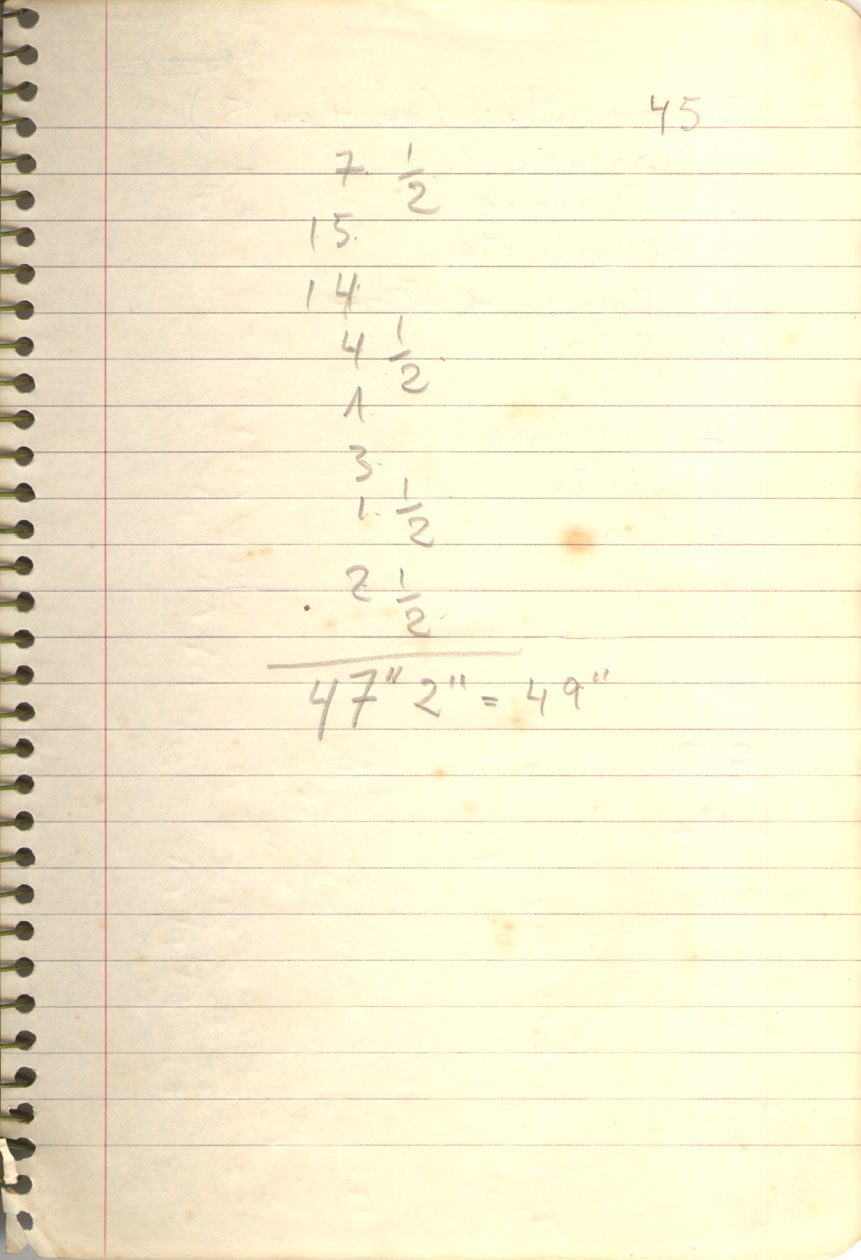 45
7 1/2
15
14
4 1/2
1
3
1 1/2
2 1/2
47" 2" = 49"